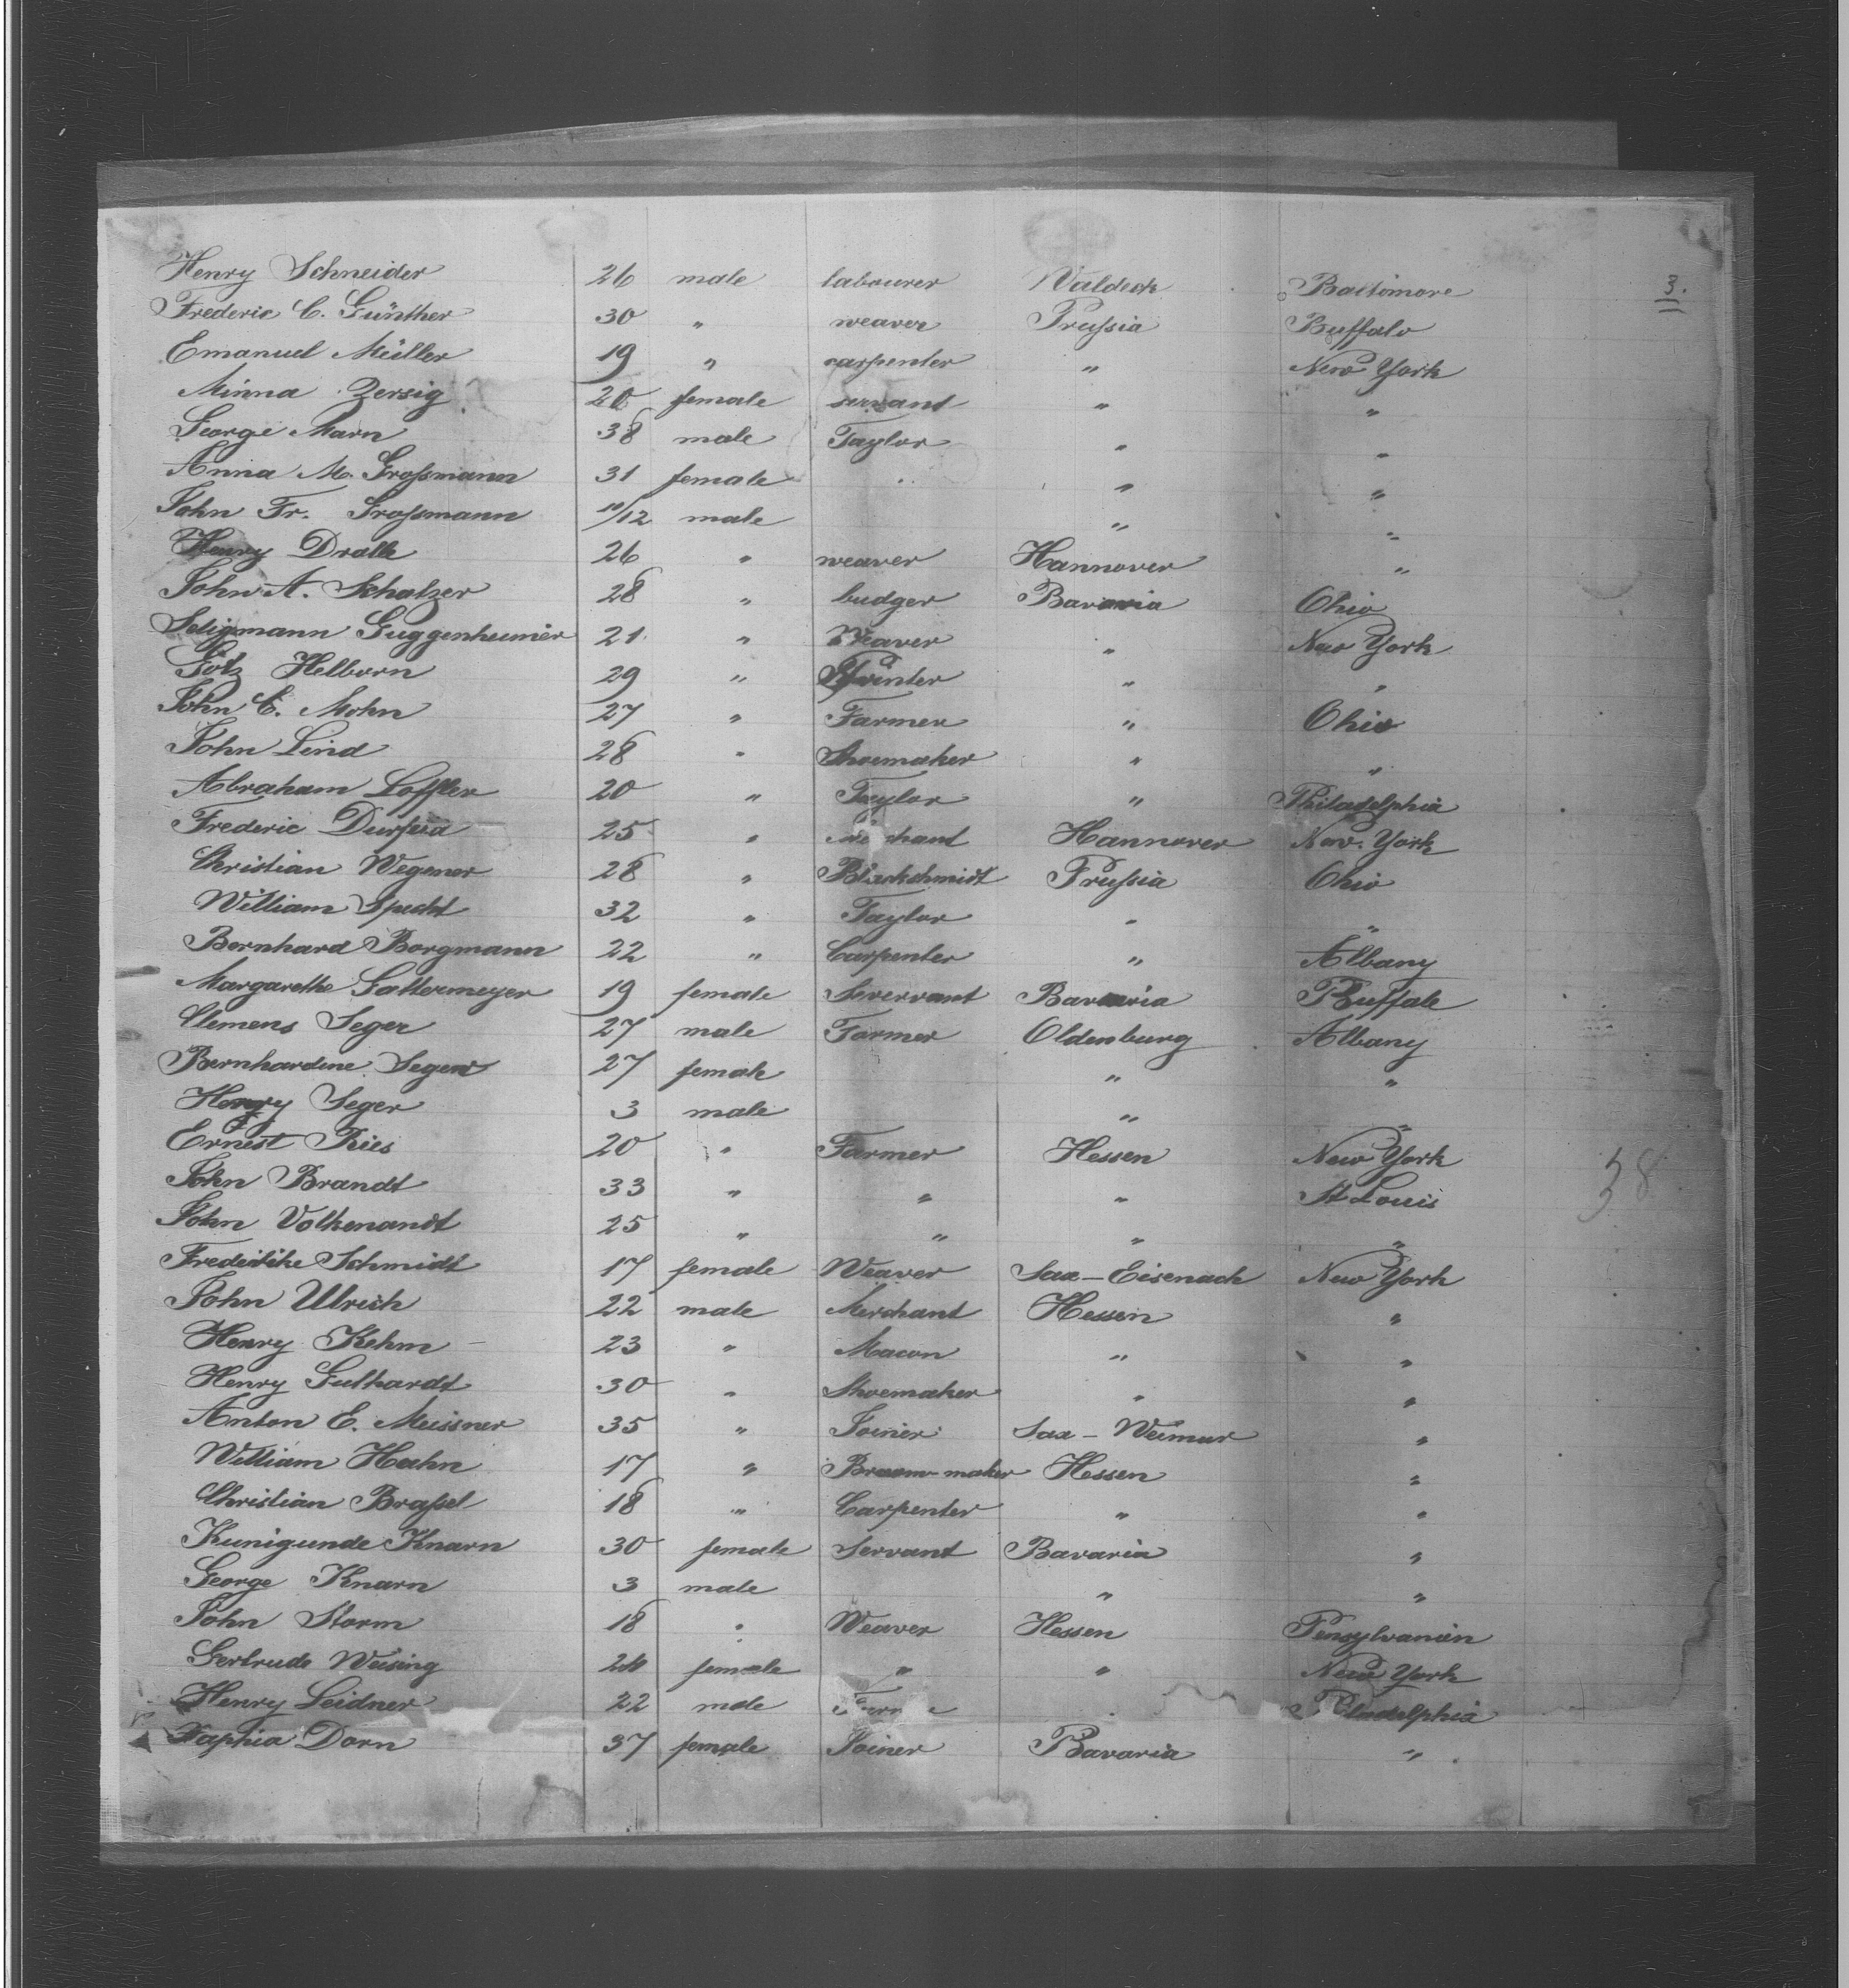 3.
Henry Schneider 26 male labourer Waldeck Baltimore
Frederic C. Günther 30 " weaver Prußia Buffalo
Emanuel Müller 19 " carpenter " New York
Minna Zersig 20 female servant " "
George Marn 38 male Taylor " "
Anna M. Großmann 31 female " "
John Fr. Großmann 10/12 male " "
Henry Dralle 26 " weaver Hannover "
John A. Schatzer 28 " budger Bavaria Ohio
Seligmann Guggenheimer 21 " Weaver " New York
Götz Helborn 29 " Printer " "
John C. Mohn 27 " Farmer " Ohio
John Lind 28 " Shoemaker " "
Abraham Loffler 20 " Taylor " Philadelphia
Frederic 25 " Merchant Hannover New York
Christian Wegener 28 " Blackschmidt Prußia Ohio
William Specht 32 " Taylor " "
Bernhard Borgmann 22 " Carpenter " Albany
Margarethe Gattermeyer 19 female Serervant Bavaria Buffalo
Clemens Seger 27 male Farmer Oldenburg Albany
Bernhardine Seger 27 female " "
Henry Seger 3 male " "
Ernest Ries 20 " Farmer Hessen New York
John Brandt 33 " " " St Louis
38
John Volkenandt 25 " " " "
Frederike Schmidt 17 female Weaver Sax-Eisenach New York
John Ulrich 22 male Merchant Hessen "
Henry Kehm 23 " Macon " "
Henry Guthardt 30 " Shoemaker " "
Anton E. Meissner 35 " Joiner Sax-Weimar "
William Hahn 17 " Broom-maker Hessen "
Christian Braßel 18 " Carpenter " "
Kunigunde Knarn 30 female Servant Bavaria "
George Knarn 3 male " "
John Storm 18 " Weaver Hessen Pensylvanien
Gertrude Weising female " " New York
Henry Leidner 22 male " Philadelphia
Dorn 37 female Joiner Bavaria "